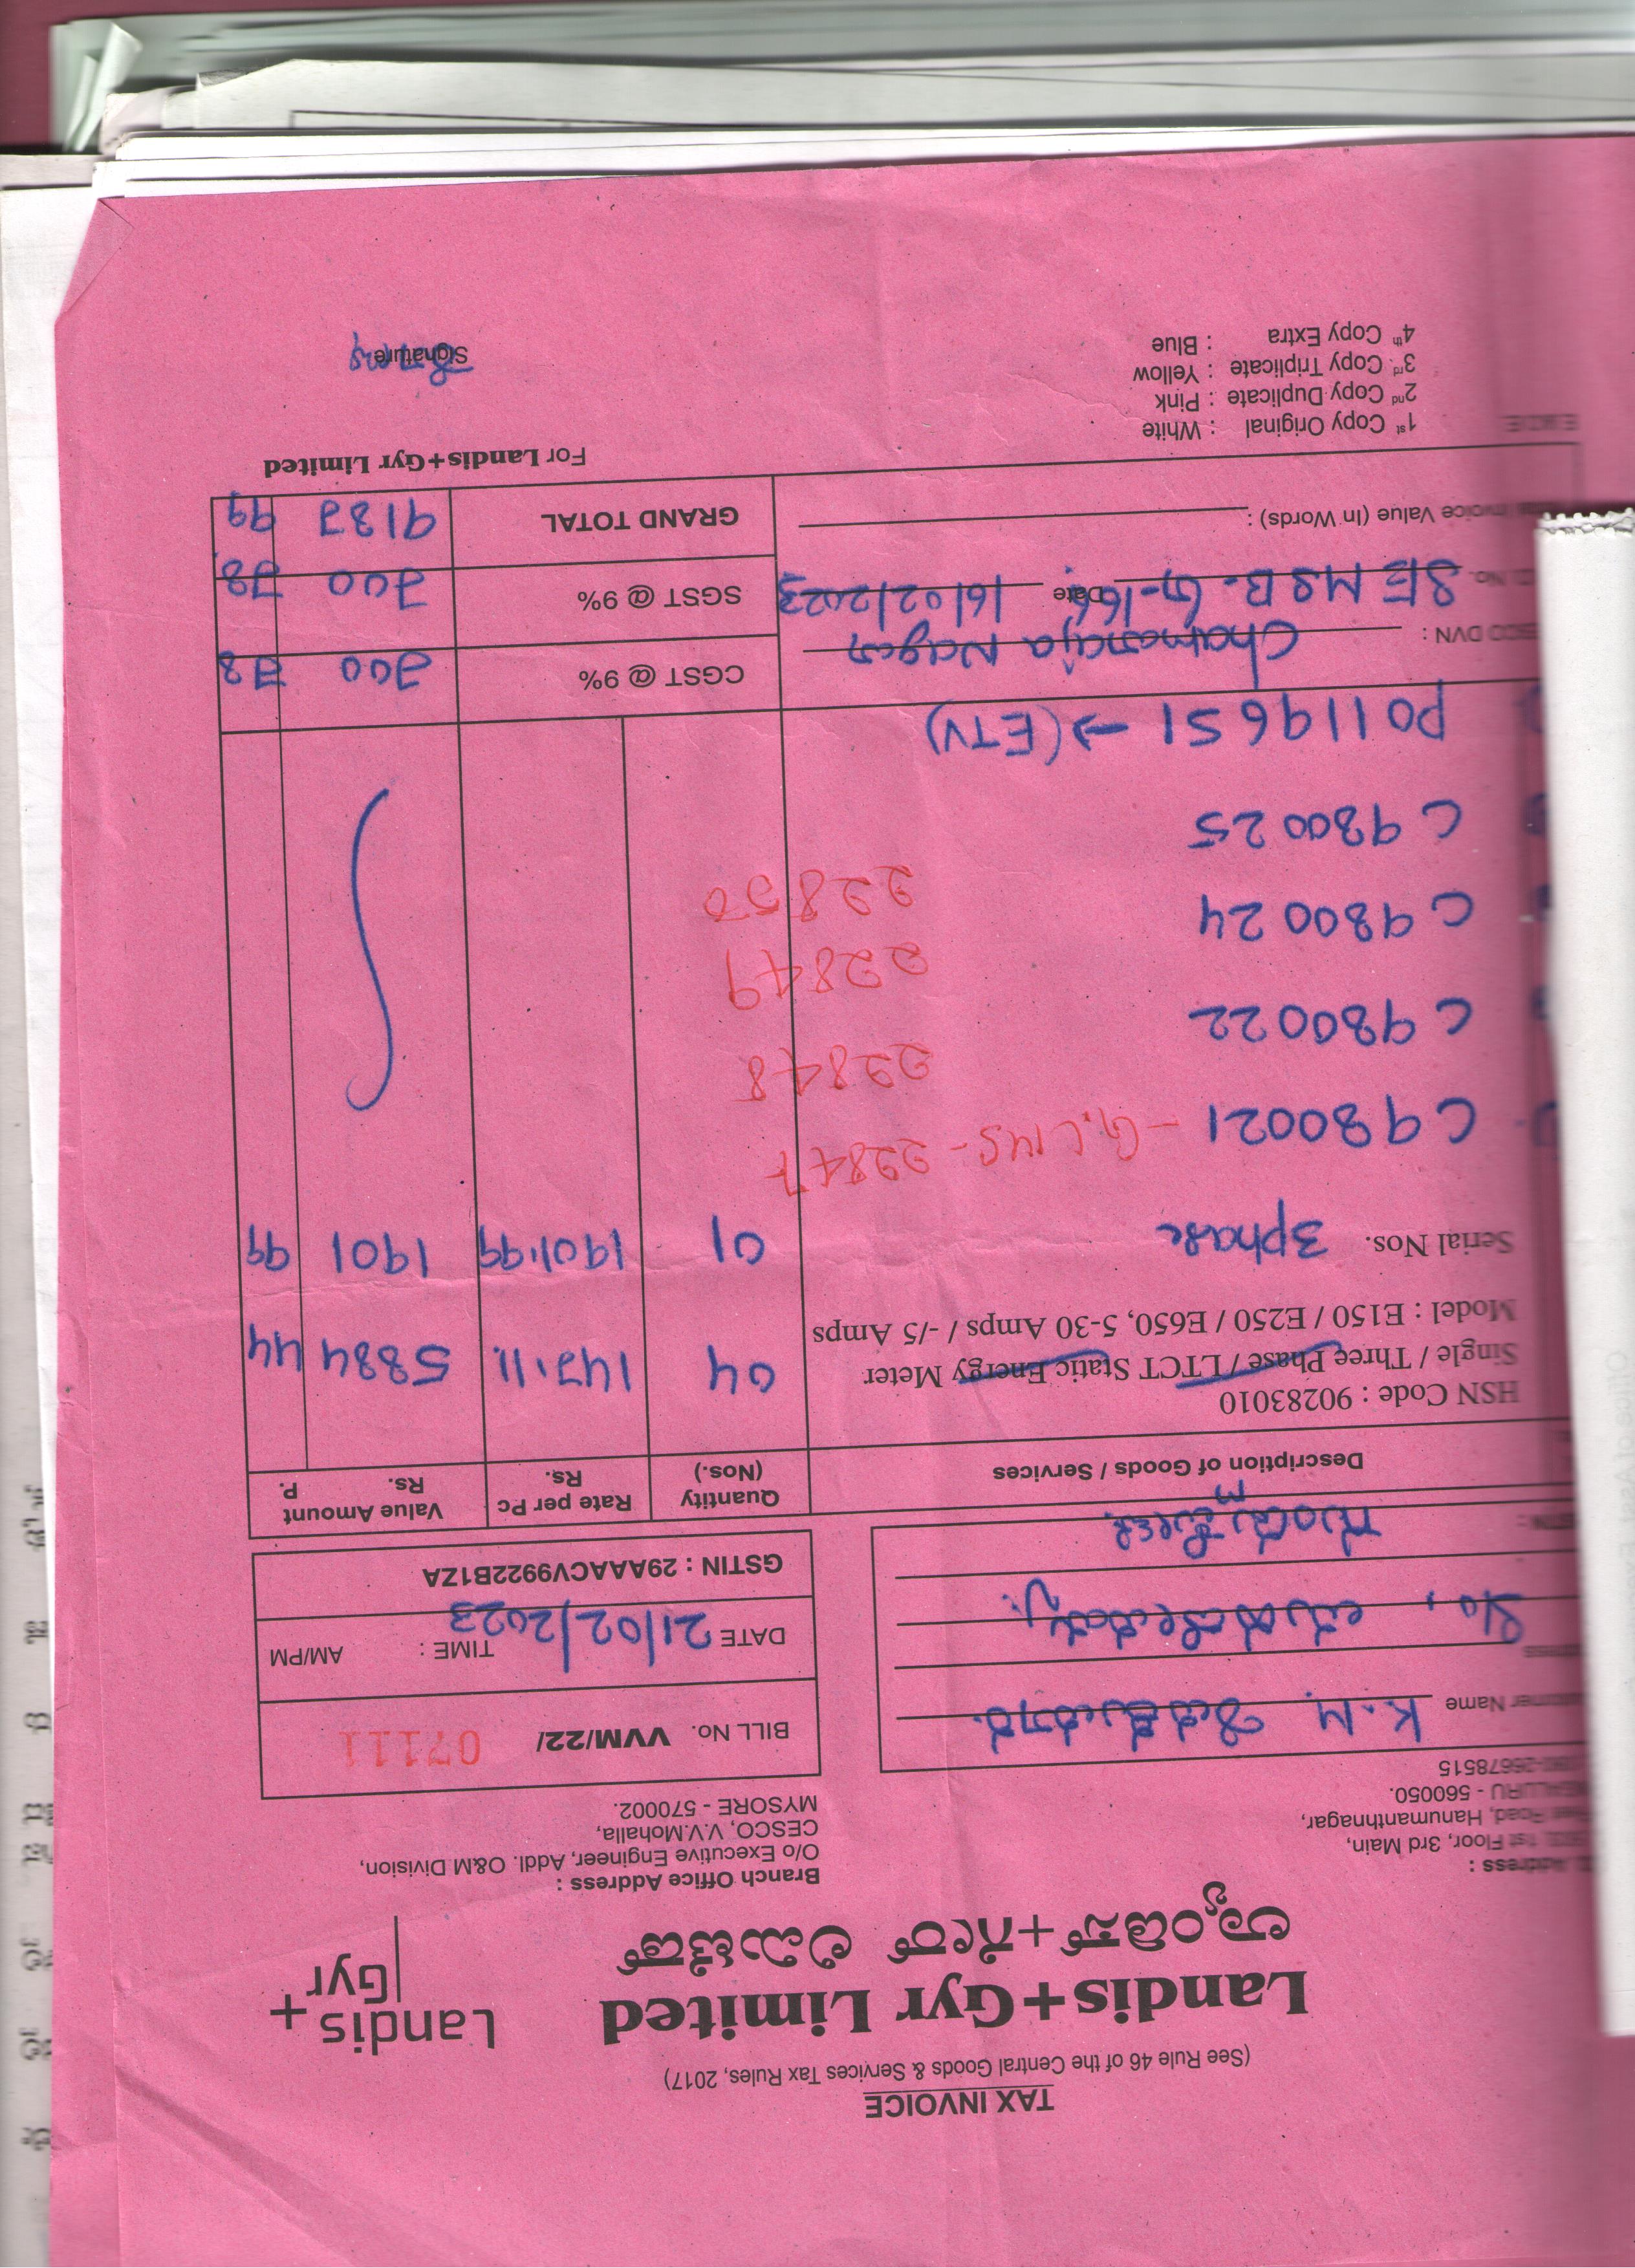 TAX INVOICE
(See Rule 46 of the Central Goods & Services Tax Rules, 2017)
Landis+Gyr Limited
ಲ್ಯಾಂಡಿಸ್+ಗೀರ್ ಲಿಮಿಟೆಡ್
Landis+
Gyr
Address :
1st Floor, 3rd Main,
Road, Hanumanthnagar,
- 560050.
26678515
Branch Office Address :
O/o Executive Engineer, Addl. O&M Division,
CESCO, V.V.Mohalla,
MYSORE - 570002.
Name K.M.
BILL No. VVM/22/ 07111
DATE 21/02/2023 TIME : AM/PM
S/o,
GSTIN : 29AAACV9922B1ZA
Description of Goods / Services
Quantity (Nos.)
Rate per Pc Rs.
Value Amount Rs. P.
HSN Code : 90283010
Single / Three Phase / LTCT Static Energy Meter
04 147.11 5884 44
Model : E150 / E250 / E650, 5-30 Amps / -/5 Amps
Serial Nos. 3phase 01 1901.99 1901 99
C980021 - G.L NS - 22847
C980022 22848
C980024 22849
C980025 22850
P0119651 → (ETV)
DVN : Chamaraja Nagar
CGST @ 9% 700 78
No. SEMSB-G-166 Date 16/02/2023
SGST @ 9% 700 78
Invoice Value (In Words) :
GRAND TOTAL 9187 99
For Landis+Gyr Limited
1st Copy Original : White
2nd Copy Duplicate : Pink
3rd Copy Triplicate : Yellow
4th Copy Extra : Blue
Signature